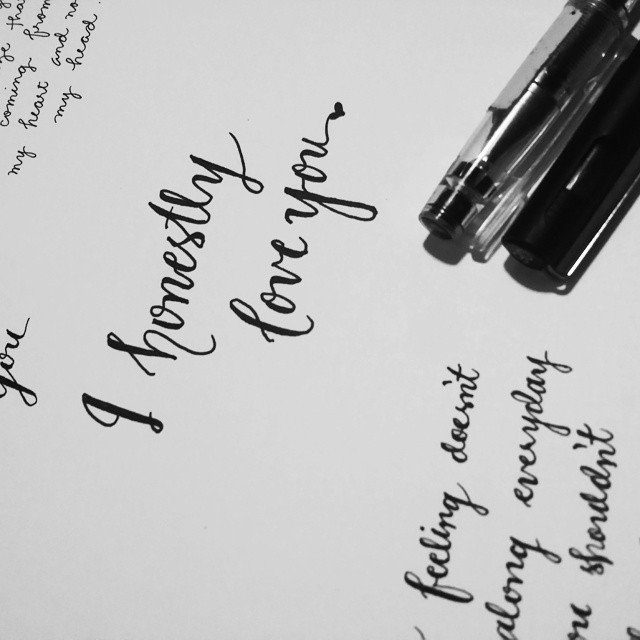 coming from
my heart and not
my head.
you
I honestly
love you
feeling doesn't
along everyday
shouldn't